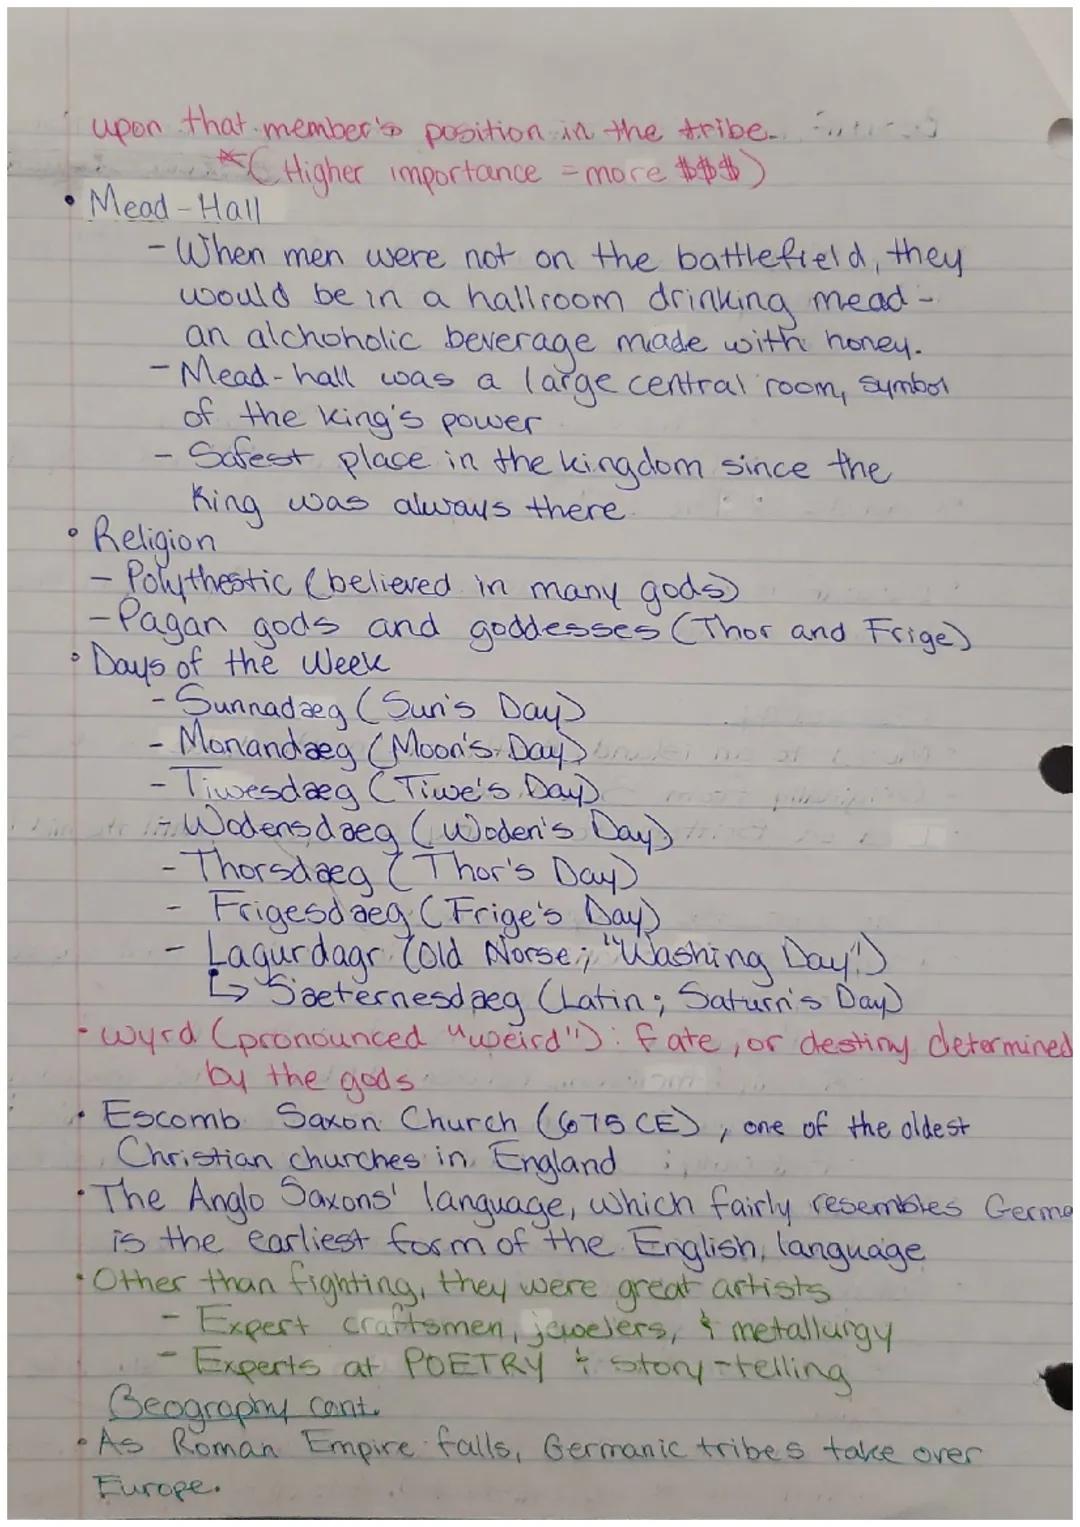 upon that member's position in the tribe.
*(Higher importance = more $$$)
• Mead-Hall
- When men were not on the battlefield, they
would be in a hallroom drinking mead -
an alchoholic beverage made with honey.
- Mead-hall was a large central room, symbol
of the king's power
- Safest place in the kingdom since the
King was always there.
• Religion
- Polythestic (believed in many gods)
- Pagan gods and goddesses (Thor and Frige)
• Days of the Week
- Sunnadaeg (Sun's Day)
- Monandaeg (Moon's Day)
- Tiwesdaeg (Tiwe's Day)
- Wodensdaeg (Woden's Day)
- Thorsdaeg (Thor's Day)
- Frigesdaeg (Frige's Day)
- Lagurdagr (Old Norse; "Washing Day")
↳ Saeternesdaeg (Latin; Saturn's Day)
• Wyrd (pronounced "weird"): fate, or destiny determined
by the gods
• Escomb Saxon Church (675 CE), one of the oldest
Christian churches in England
• The Anglo Saxons' language, which fairly resembles Germa
is the earliest form of the English language
• Other than fighting, they were great artists
- Expert craftsmen, jewelers, & metallurgy
- Experts at POETRY & story-telling
Geography cont.
• As Roman Empire falls, Germanic tribes take over
Europe.